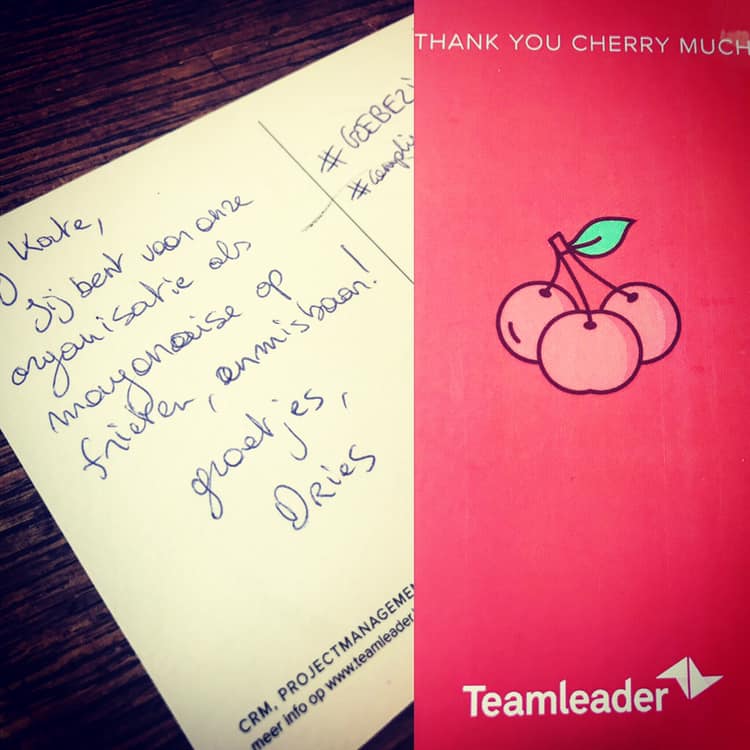 Kate,
jij bent voor onze
organisatie als
mayonaise op
frieten, onmisbaar!
groetjes,
Dries
# GOEBEZI
#compli
CRM, PROJECTMANAGEMEN
meer info op www.teamleader.
THANK YOU CHERRY MUCH
Teamleader